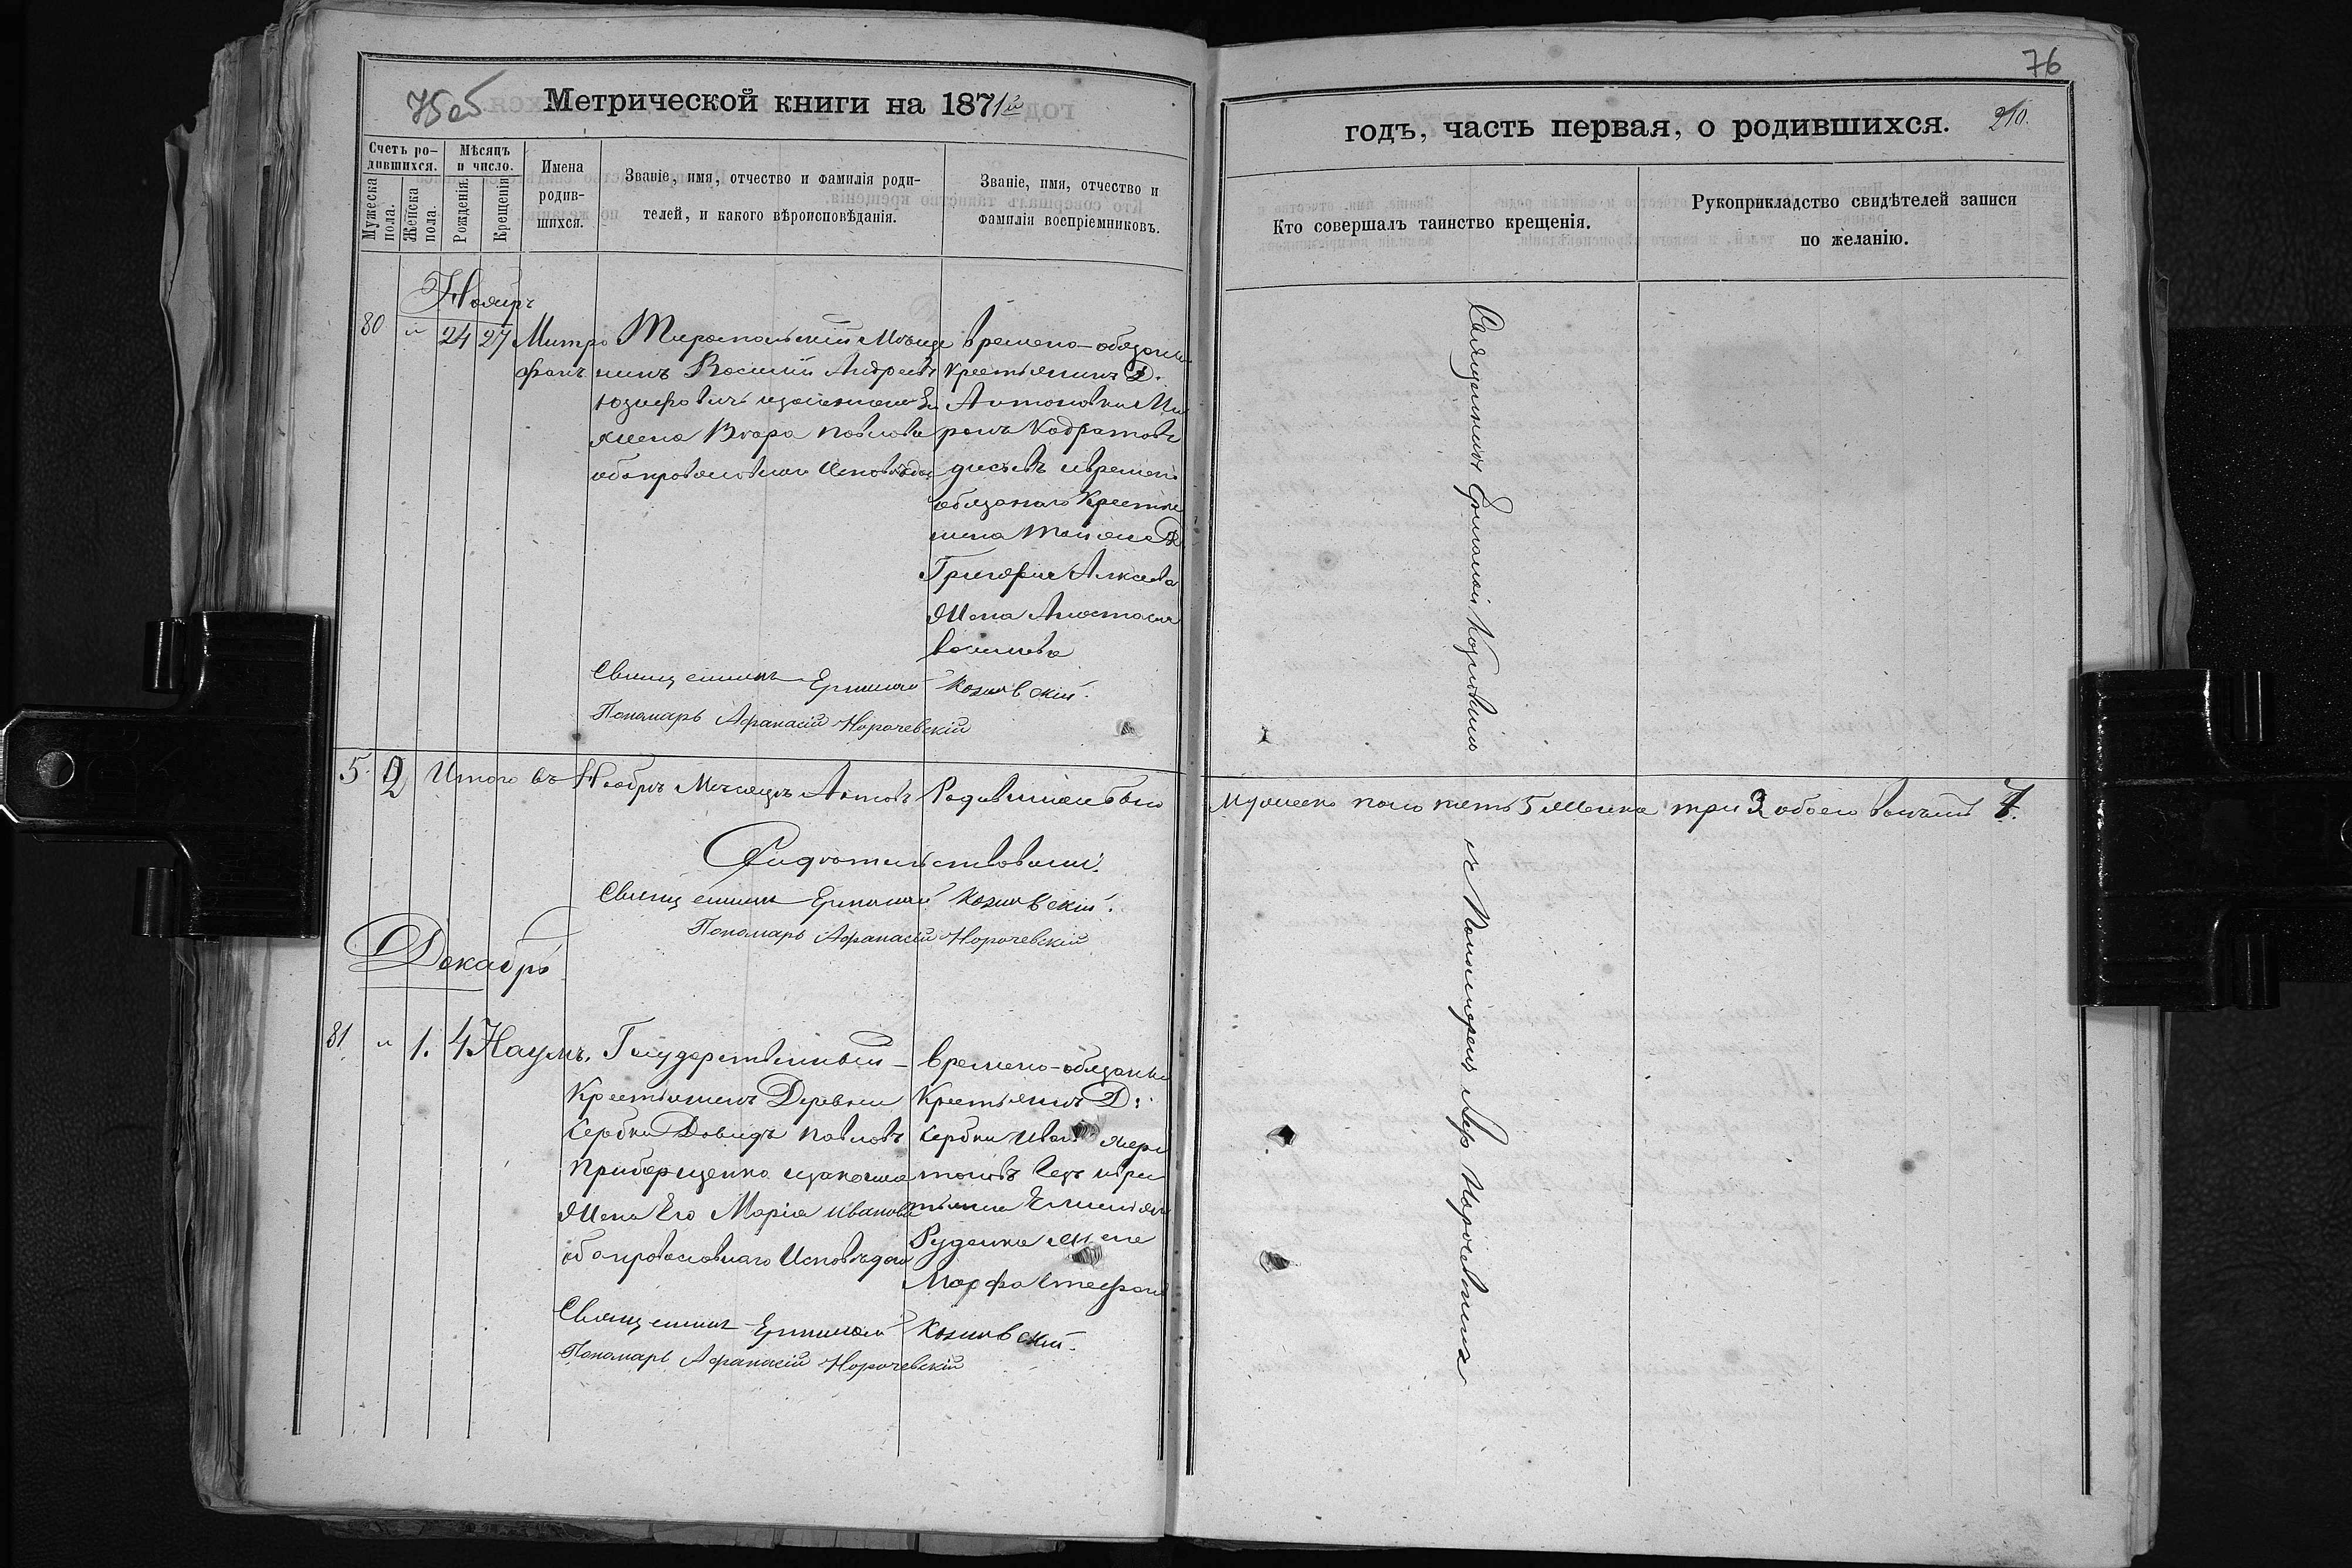 75 об
Метрической книги на 1871й
Счетъ ро-
дившихся.
Мужеска пола.
Женска пола.
Мѣсяцъ
и число.
Рожденія.
Крещенія.
Имена
родив-
шихся.
Званіе, имя, отчество и фамилія роди-
телей, и какого вѣроисповѣданія.
Званіе, имя, отчество и
фамилія воспріемниковъ.
Ноябрь
80 " 24 27
Митро
фанъ
Тираспольскій Мѣща
нинъ Василій Андреевъ
Юзифовичъ изаконная Ея
жена Вѣра Павлова
оба православнаго Исповѣдан
временно-обязаный
крестьянинъ Д.
Антоновки Ми
ронъ
и времено
обязанаго Крестья
нина тойже Д.
Григорія Алксѣева
Жена Анастасія
василева
Священникъ Ермолай Козловскій.
Пономарь Афанасій Норочевскій
5. 2 Итого въ Ноябрѣ Мѣсяцѣ Актовъ Родившихся было
Свидѣтельствовали:
Священникъ Ермолай Козловскій.
Пономарь Афанасій Норочевскій
Декабрь
81. " 1. 4 Наумъ.
Государственный
Крестьянинъ Деревни
Сербки Давидъ Павловъ
изаконная
Жена Его Марія Иванова
оба православнаго Исповѣдан
времено-обязаный
Крестьянинъ Д:
Сербки Иван
Руденка жена
Марфа Стефан
Священникъ Ермолай Козловскій.
Пономарь Афанасій Норочевскій
76
годъ, часть первая, о родившихся.
210.
Кто совершалъ таинство крещенія.
Рукоприкладство свидѣтелей записи
по желанію.
Священникъ Ермолай Козловскій
съ Пономаремъ Норочевскимъ
Мужеска пола пять 5 женска три 2 обоего вообщѣ 7.